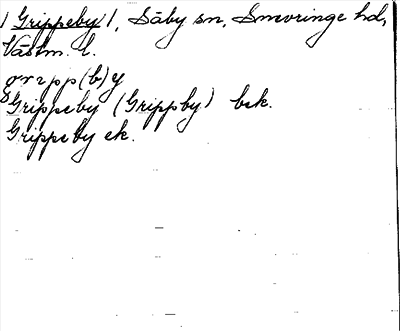 Grippeby 1, Säby sn, Snevringe hd,
Västm. l.
gripp(b)y
Grippeby (Grippby) bek.
Grippeby ek.